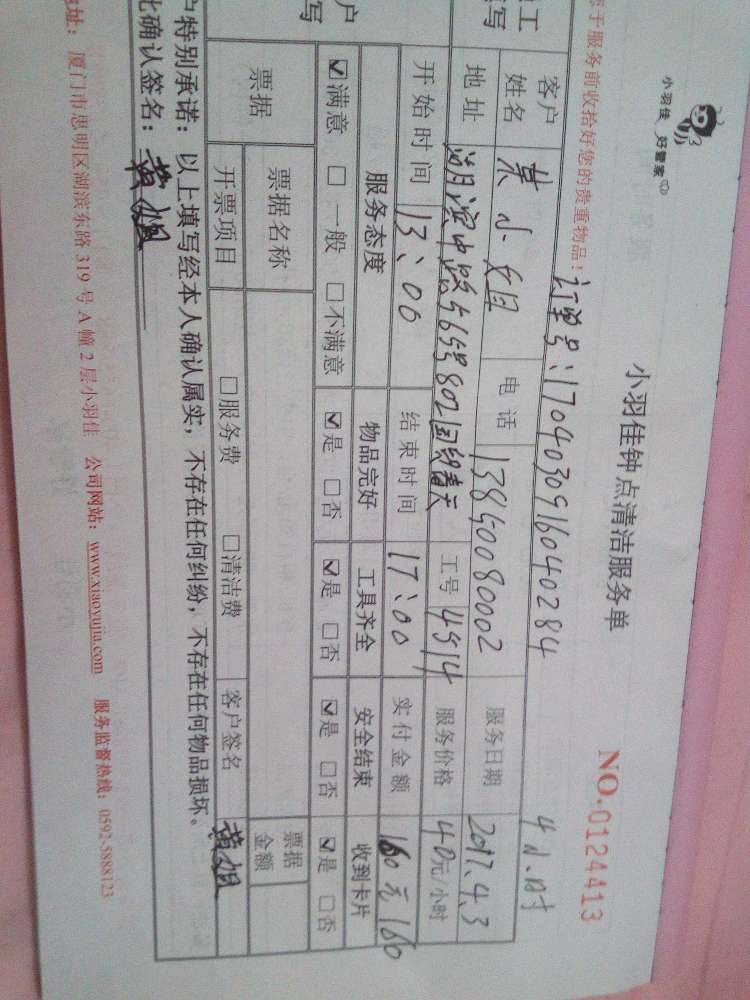 小羽佳 好管家
小羽佳钟点清洁服务单
NO.0124413
您于服务前收拾好您的贵重物品！ 订单号：1704030916040284 4小时
客户姓名 小姐 电话 13850080002 服务日期 2017.4.3
地址 湖滨中路565号802国贸春天 工号 4514 服务价格 40元/小时
开始时间 13：00 结束时间 17：00 实付金额 160元 160
服务态度 物品完好 工具齐全 安全结束 收到卡片
☑满意 □一般 □不满意 ☑是 □否 ☑是 □否 ☑是 □否 ☑是 □否
票据 票据名称 票据金额
开票项目 □服务费 □清洁费 客户签名 黄姐
户特别承诺：以上填写经本人确认属实，不存在任何纠纷，不存在任何物品损坏。
此确认签名：黄姐
地址：厦门市思明区湖滨东路319号A幢2层小羽佳 公司网站：www.xiaoyujia.com 服务监督热线：0592-5888123